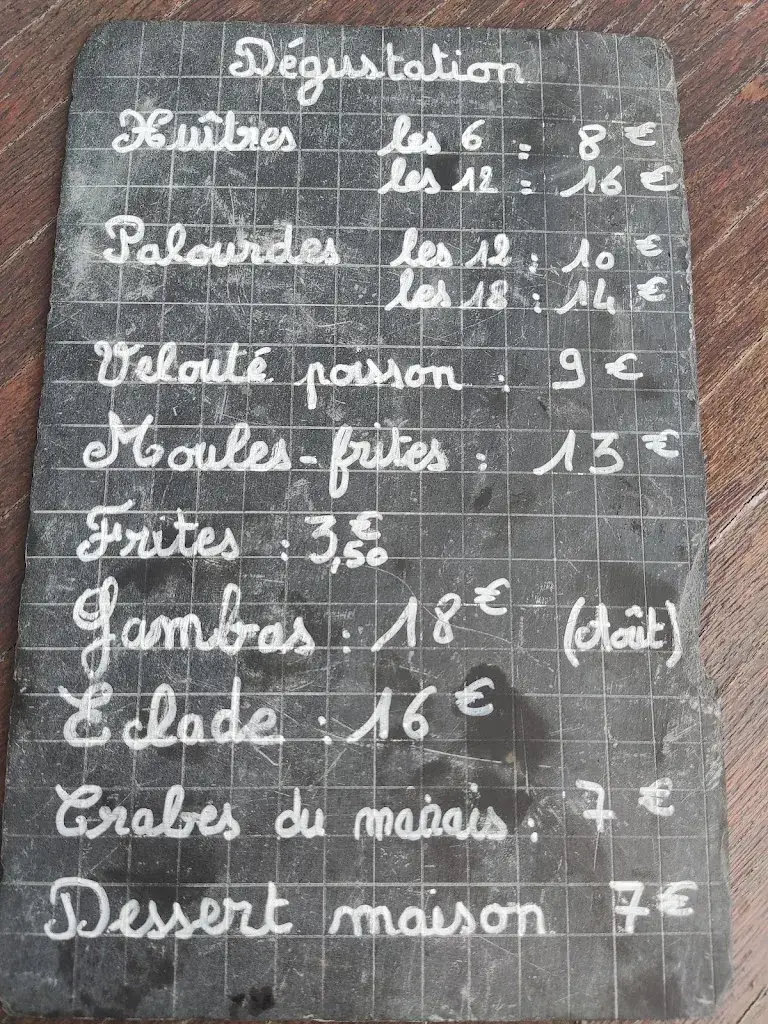 Dégustation
Huîtres les 6 : 8 €
les 12 : 16 €
Palourdes les 12 : 10 €
les 18 : 14 €
Velouté poisson : 9 €
Moules-frites : 13 €
Frites : 3,50 €
Gambas : 18 € (Août)
Eclade : 16 €
Crabes du marais : 7 €
Dessert maison 7 €